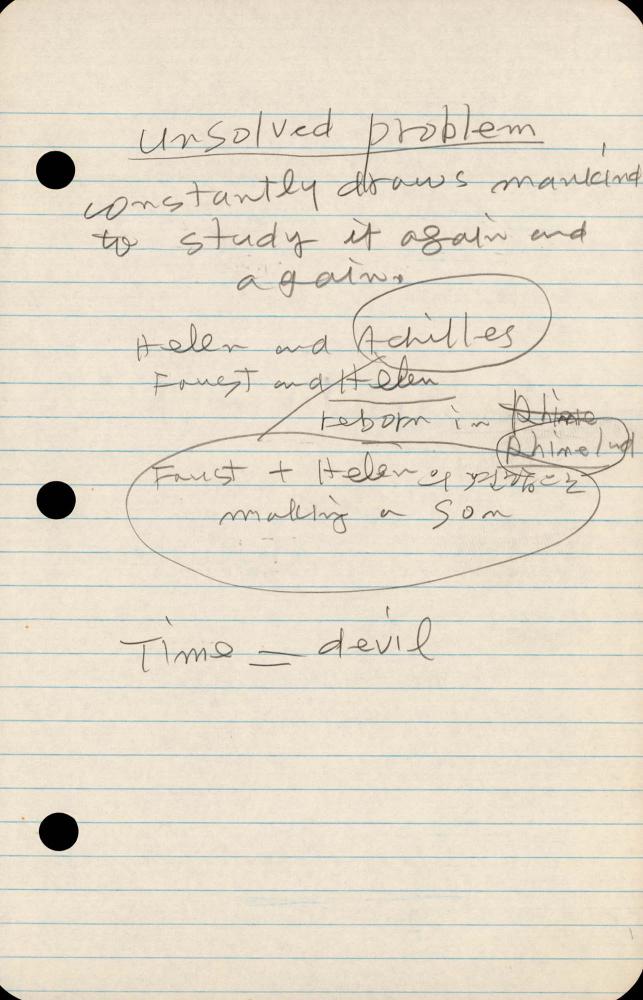 unsolved problem
constantly draws mankind
to study it again and
again.
Helen and Achilles
Faust and Helen
reborn in Rhine
Rhineland
Faust + Helen 의
making a Son
Time = devil